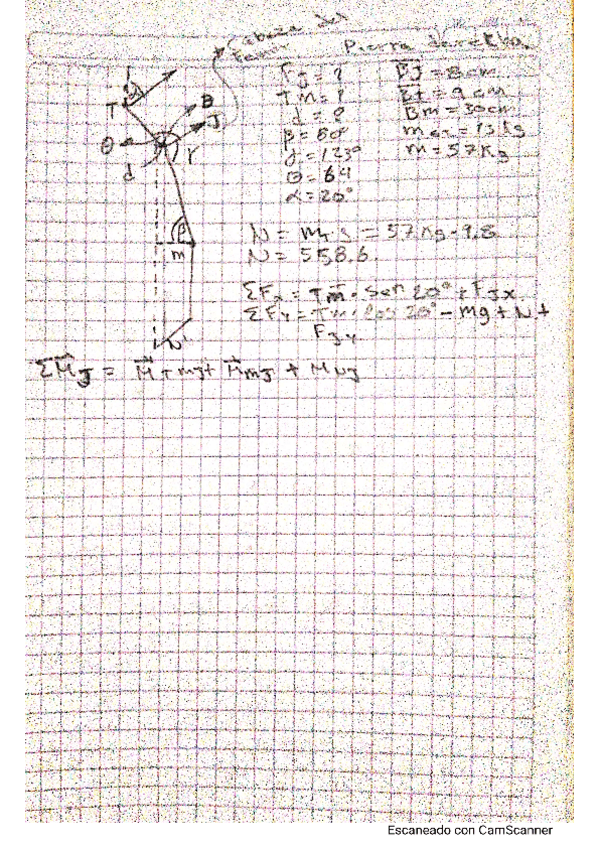 Cabeza del
Femur
Pierna derecha.
FJ = ?
Tm = ?
d = ?
β = 80°
γ = 123°
θ = 64
α = 20°
BJ = 8 cm
Bt = 9 cm
Bm = 30 cm
m = 57 Kg
T
B
J
θ
γ
d
β
m
N
N = mT · g = 57 Kg · 9.8
N = 558.6
ΣFx = Tm · Sen 20° + FJx
ΣFy = Tm · Cos 20° - mg + N +
FJy
ΣMJ = MTmJ + MmJ + MNJ
Escaneado con CamScanner